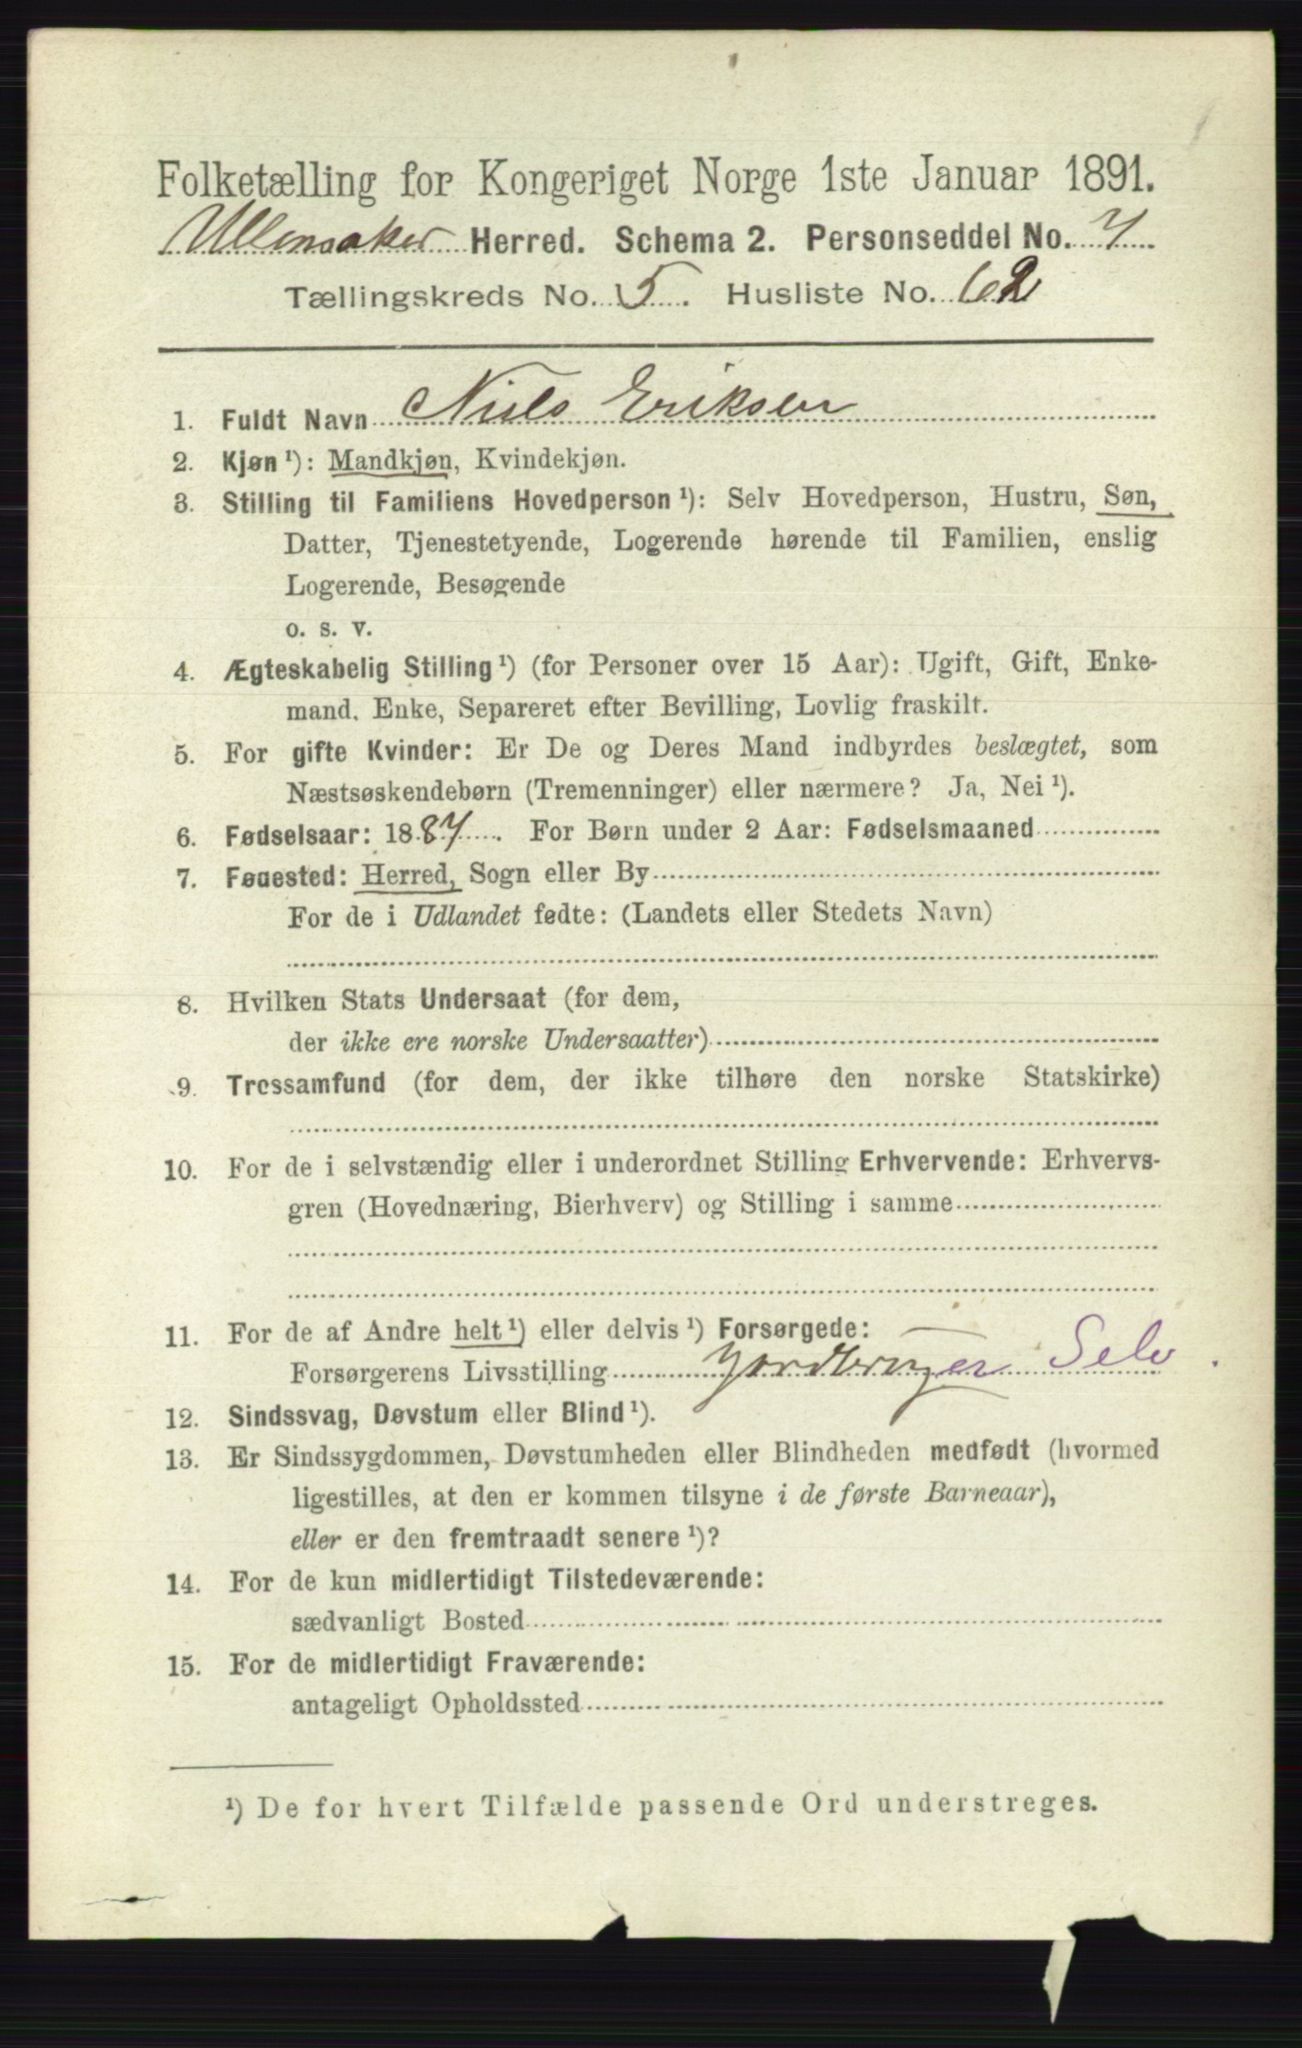 Folketælling for Kongeriget Norge 1ste Januar 1891.
Ullensaker Herred. Schema 2. Personseddel No. 7
Tællingskreds No. 5. Husliste No. 62
1. Fuldt Navn Niels Eriksen
2. Kjøn ¹): Mandkjøn, Kvindekjøn.
3. Stilling til Familiens Hovedperson ¹): Selv Hovedperson, Hustru, Søn,
Datter, Tjenestetyende, Logerende hørende til Familien, enslig
Logerende, Besøgende
o. s. v.
4. Ægteskabelig Stilling ¹) (for Personer over 15 Aar): Ugift, Gift, Enke-
mand, Enke, Separeret efter Bevilling, Lovlig fraskilt.
5. For gifte Kvinder: Er De og Deres Mand indbyrdes beslægtet, som
Næstsøskendebørn (Tremenninger) eller nærmere? Ja, Nei ¹).
6. Fødselsaar: 1887. For Børn under 2 Aar: Fødselsmaaned
7. Fødested: Herred, Sogn eller By
For de i Udlandet fødte: (Landets eller Stedets Navn)
8. Hvilken Stats Undersaat (for dem,
der ikke ere norske Undersaatter)
9. Trossamfund (for dem, der ikke tilhøre den norske Statskirke)
10. For de i selvstændig eller i underordnet Stilling Erhvervende: Erhvervs-
gren (Hovednæring, Bierhverv) og Stilling i samme
11. For de af Andre helt ¹) eller delvis ¹) Forsørgede:
Forsørgerens Livsstilling Selv.
12. Sindssvag, Døvstum eller Blind ¹).
13. Er Sindssygdommen, Døvstumheden eller Blindheden medfødt (hvormed
ligestilles, at den er kommen tilsyne i de første Barneaar),
eller er den fremtraadt senere ¹)?
14. For de kun midlertidigt Tilstedeværende:
sædvanligt Bosted
15. For de midlertidigt Fraværende:
antageligt Opholdssted
¹) De for hvert Tilfælde passende Ord understreges.